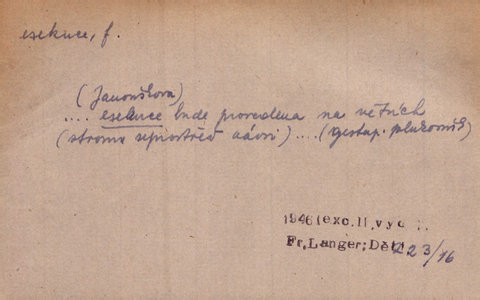 esekuce, f.
(Janouškova)
.... esekuce bude provedena na větvích
(stromu uprostřed návsi) .... (gestap. plukovník)
1946 (exc. II. vyd.
Fr. Langer; Děti 223/16